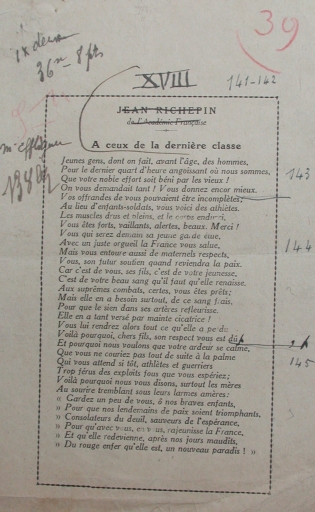 39
1x deux
36 m 8 pts
XVIII
141-142
JEAN RICHEPIN
de l'Académie Française
A ceux de la dernière classe
Jeunes gens, dont on fait, avant l'âge, des hommes,
Pour le dernier quart d'heure angoissant où nous sommes,
Que votre noble effort soit béni par les vieux !
On vous demandait tant ! Vous donnez encor mieux.
143
Vos offrandes de vous pouvaient être incomplètes ;
Au lieu d'enfants-soldats, vous voici des athlètes.
Les muscles drus et pleins, et le endurci,
Vous êtes forts, vaillants, alertes, beaux. Merci !
Vous qui serez demain sa jeune garde
Avec un juste orgueil la France vous salue,
144
Mais vous entoure aussi de maternels respects,
Vous, son futur soutien quand reviendra la paix.
Car c'est de vous, ses fils, c'est de votre jeunesse,
C'est de votre beau sang qu'il faut qu'elle renaisse.
Aux suprêmes combats, certes, vous êtes prêts ;
Mais elle en a besoin surtout, de ce sang frais,
Pour que le sien dans ses artères refleurisse.
Elle en a tant versé par mainte cicatrice !
Vous lui rendrez alors tout ce qu'elle a perdu.
Voilà pourquoi, chers fils, son respect vous est dû,
Et pourquoi nous voulons que votre ardeur se calme,
Que vous ne couriez pas tout de suite à la palme
145
Qui vous attend si tôt, athlètes et guerriers
Trop férus des exploits fous que vous espériez ;
Voilà pourquoi nous vous disons, surtout les mères
Au sourire tremblant sous leurs larmes amères :
« Gardez un peu de vous, ô nos braves enfants,
» Pour que nos lendemains de paix soient triomphants,
» Consolateurs du deuil, sauveurs de l'espérance,
» Pour qu'avec vous, en vous, rajeunisse la France,
» Et qu'elle redevienne, après nos jours maudits,
» Du rouge enfer qu'elle est, un nouveau paradis ! »